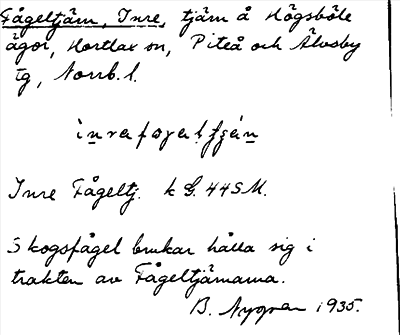 Fågeltjärn, Inre, tjärn å Högsböle
ägor, Hortlax sn, Piteå och Älvsby
tg, Norrb. l.
Inre Fågeltj. k G. 44SM.
Skogsfågel brukar hålla sig i
trakten av Fågeltjärnarna.
B. Nygren 1935.